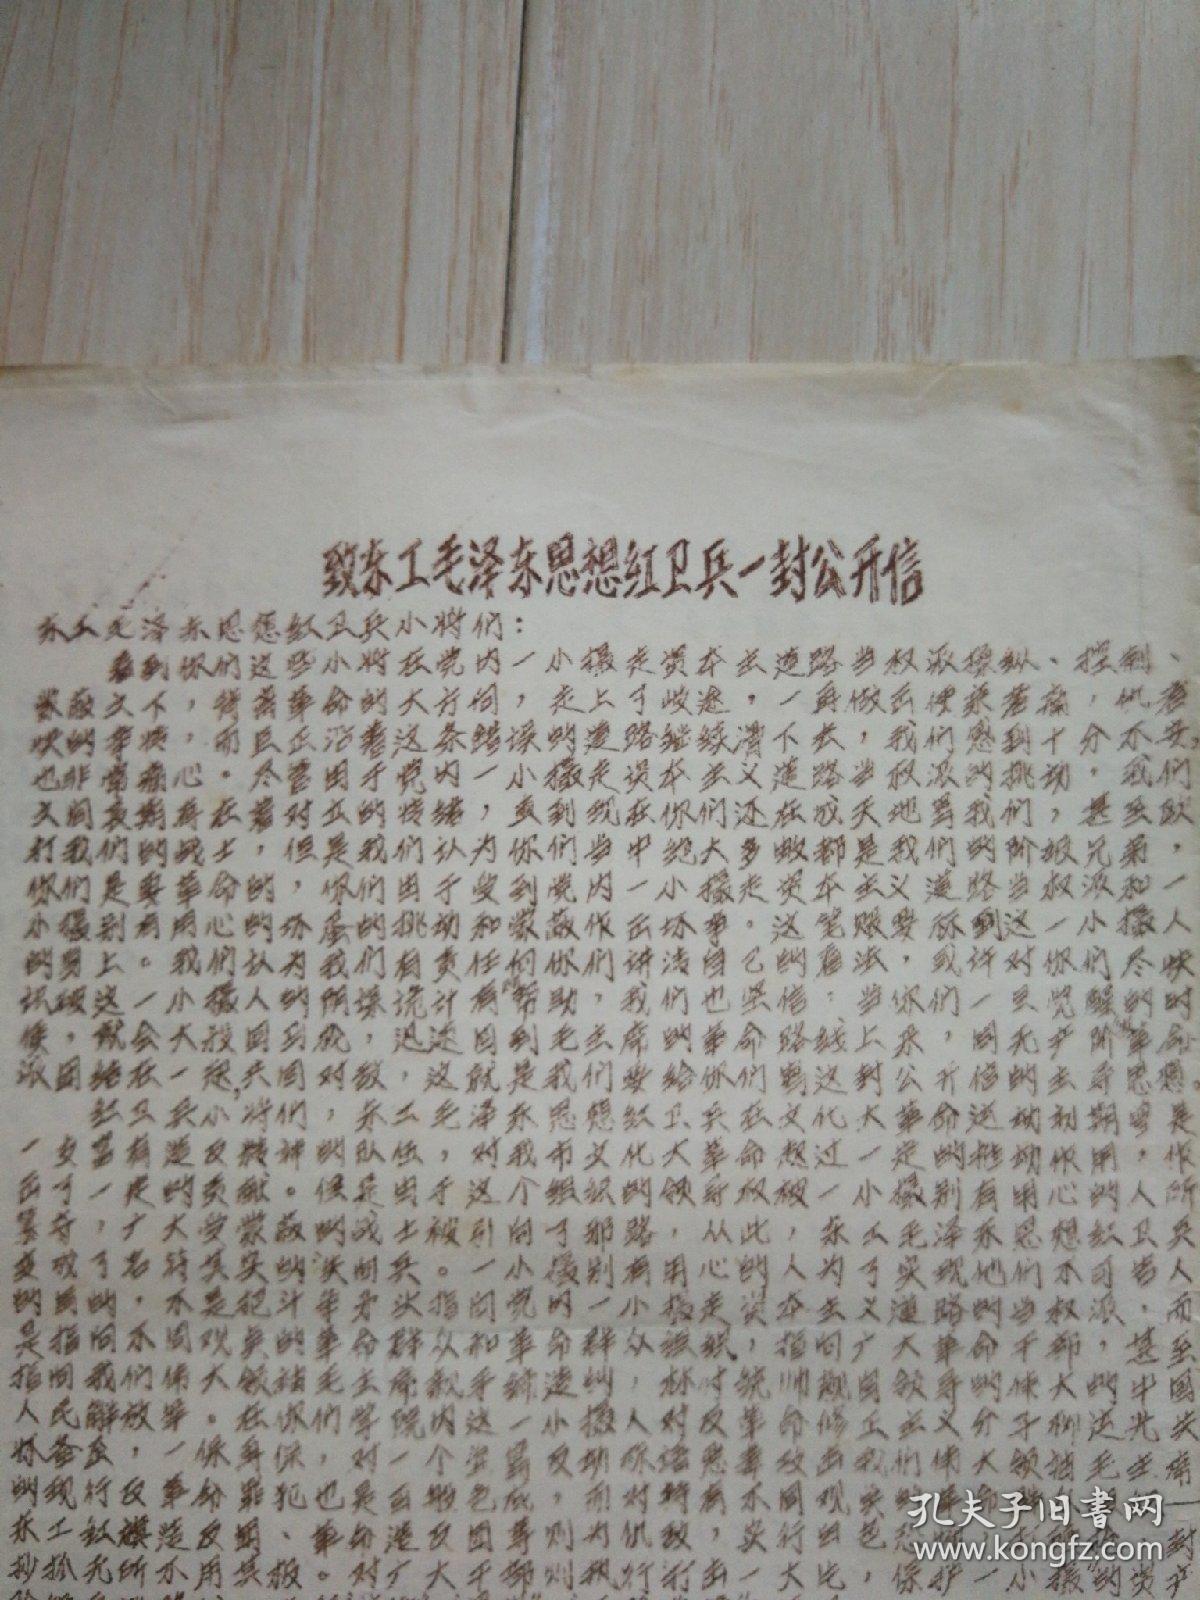 致东工毛泽东思想红卫兵一封公开信
东工毛泽东思想红卫兵小将们：
看到你们这些小将在党内一小撮走资本主义道路当权派操纵、控制、
蒙蔽之下，背着革命的大方向，走上了歧途，一再做出使亲者痛，仇者
快的事情，而且正沿着这条错误的道路继续滑下去，我们感到十分不安，
也非常痛心。尽管由于党内一小撮走资本主义道路当权派的挑动，我们
之间长期存在着对立的情绪，直到现在你们还在成天地骂我们，甚至欧
打我们的战士，但是我们认为你们当中绝大多数都是我们的阶级兄弟，
你们是要革命的，你们由于受到党内一小撮走资本主义道路当权派和一
小撮别有用心的坏蛋的挑动和蒙蔽作出坏事，这笔账要标到这一小撮人
的身上。我们认为我们有责任向你们讲清自己的看法，或许对你们尽快
识破这一小撮人的阴谋诡计有所帮助，我们也坚信：当你们一旦觉醒的时
候，就会大投回到成，迅速回到毛主席的革命路线上来，同无产阶级革命
派团结在一起，共同对敌，这就是我们要给你们写这封公开信的主导思想。
红卫兵小将们，东工毛泽东思想红卫兵在文化大革命运动初期曾是
一支富有造反精神的队伍，对我市文化大革命起过一定的推动作用，作
出了一定的贡献。但是由于这个组织的领导权被一小撮别有用心的人所
篡夺，广大受蒙蔽的战士被引向了邪路，从此，东工毛泽东思想红卫兵
变成了名符其实的 兵。一小撮别有用心的人为了实现他们不可告人
的目的，不是把斗争矛头指向党内一小撮走资本主义道路的当权派，而
是指向不同观点的革命群众和革命群众组织，指向广大革命干部，甚至
指向我们伟大领袖毛主席亲手缔造的，林付统帅亲自领导的伟大的中国
人民解放军。在你们学院内这一小撮人对反革命修正主义分子柳运光关
怀备至，一保再保，对一个公然反动 恶毒攻击我们伟大领袖毛主席
的现行反革命罪犯也是百般包庇，而对持有不同观点的革命
东工红旗造反团、革命造反团等则为仇敌，实行白色恐 封
抄抓无所不用其极。对广大干部则执行打击一大片，保护一小撮的资产